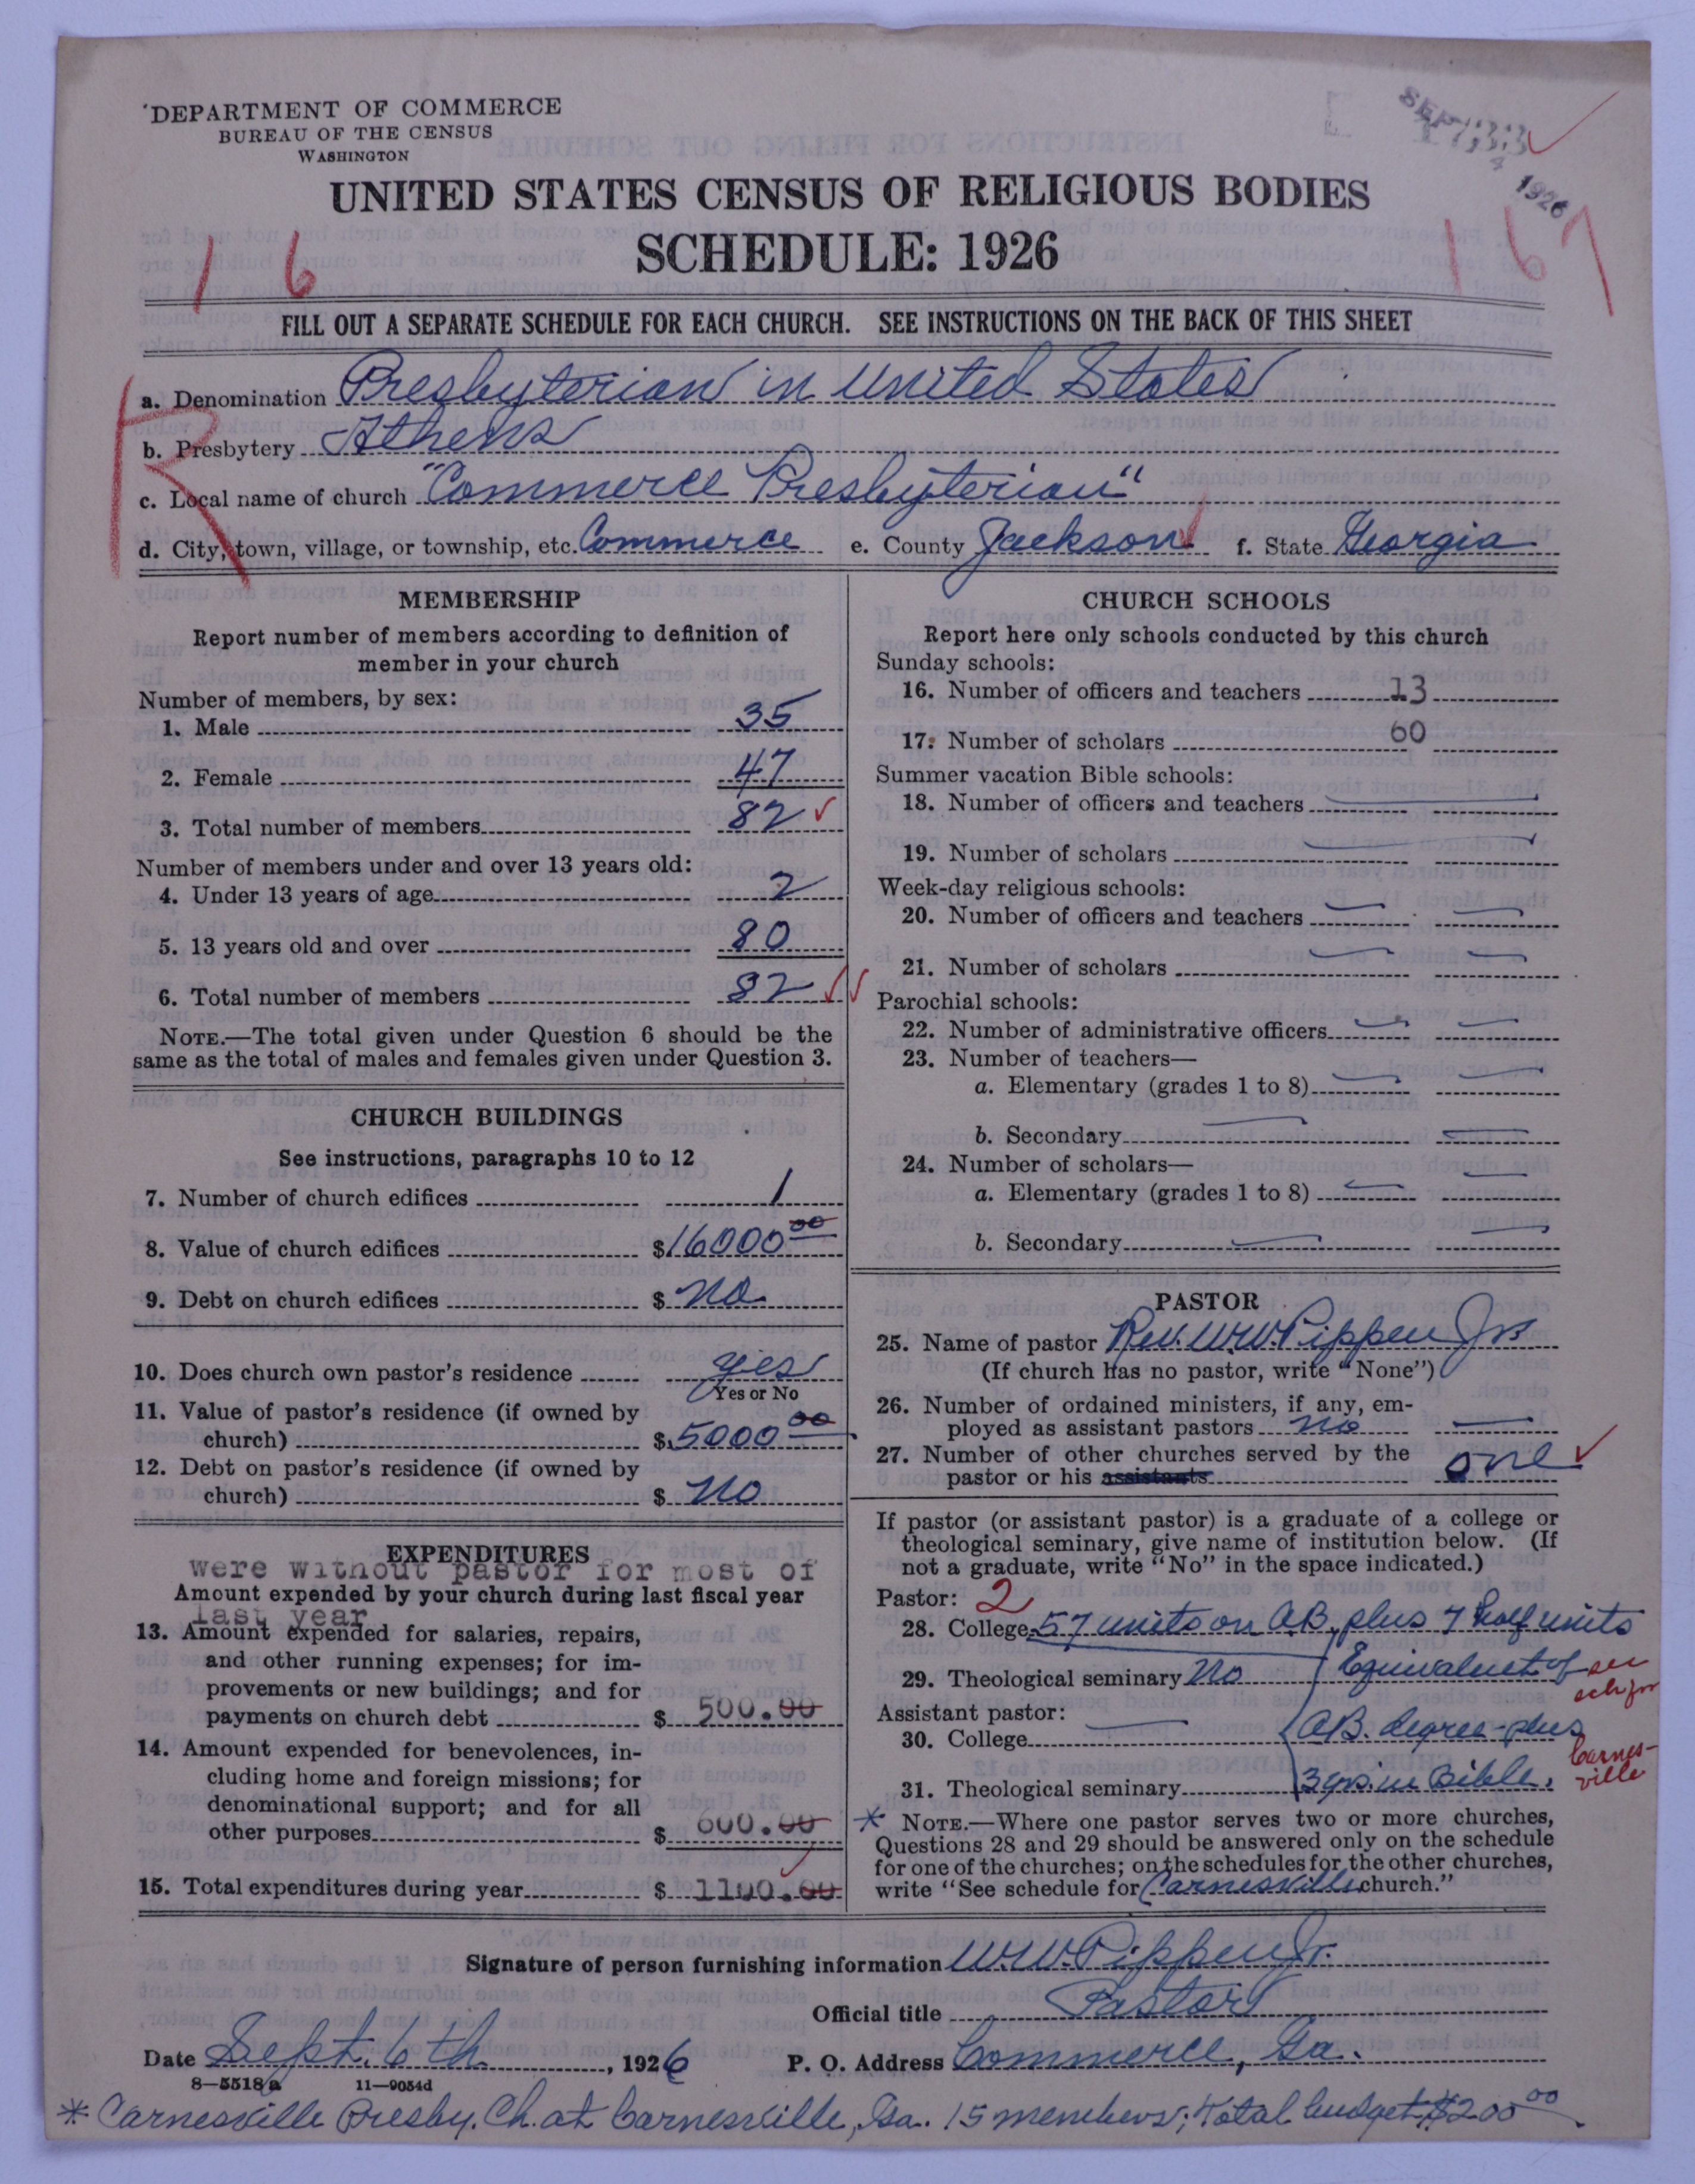 DEPARTMENT OF COMMERCE
BUREAU OF THE CENSUS
WASHINGTON
SEP 1926
UNITED STATES CENSUS OF RELIGIOUS BODIES
SCHEDULE: 1926
16
167
FILL OUT A SEPARATE SCHEDULE FOR EACH CHURCH. SEE INSTRUCTIONS ON THE BACK OF THIS SHEET
R
a. Denomination Presbyterian in United States
b. Presbytery Athens
c. Local name of church "Commerce Presbyterian"
d. City, town, village, or township, etc. Commerce e. County Jackson f. State Georgia
MEMBERSHIP
Report number of members according to definition of
member in your church
Number of members, by sex:
1. Male 35
2. Female 47
3. Total number of members 82
Number of members under and over 13 years old:
4. Under 13 years of age 2
5. 13 years old and over 80
6. Total number of members 82
NOTE.—The total given under Question 6 should be the
same as the total of males and females given under Question 3.
CHURCH BUILDINGS
See instructions, paragraphs 10 to 12
7. Number of church edifices 1
8. Value of church edifices $16000 00
9. Debt on church edifices $ no
10. Does church own pastor's residence yes
Yes or No
11. Value of pastor's residence (if owned by
church) $5000 00
12. Debt on pastor's residence (if owned by
church) $ no
EXPENDITURES
were without pastor for most of
Amount expended by your church during last fiscal year
last year
13. Amount expended for salaries, repairs,
and other running expenses; for im-
provements or new buildings; and for
payments on church debt $ 500.00
14. Amount expended for benevolences, in-
cluding home and foreign missions; for
denominational support; and for all
other purposes $ 600.00
15. Total expenditures during year $ 1100.00
CHURCH SCHOOLS
Report here only schools conducted by this church
Sunday schools:
16. Number of officers and teachers 13
17. Number of scholars 60
Summer vacation Bible schools:
18. Number of officers and teachers
19. Number of scholars
Week-day religious schools:
20. Number of officers and teachers
21. Number of scholars
Parochial schools:
22. Number of administrative officers
23. Number of teachers—
a. Elementary (grades 1 to 8)
b. Secondary
24. Number of scholars—
a. Elementary (grades 1 to 8)
b. Secondary
PASTOR
25. Name of pastor Rev. W.W. Pippen Jr.
(If church has no pastor, write "None")
26. Number of ordained ministers, if any, em-
ployed as assistant pastors no
27. Number of other churches served by the
pastor or his assistants one
If pastor (or assistant pastor) is a graduate of a college or
theological seminary, give name of institution below. (If
not a graduate, write "No" in the space indicated.)
Pastor: 2
28. College 57 units on AB, plus 7 half units
29. Theological seminary No Equivalent of
see sch for
Assistant pastor:
30. College AB. degree-plus
Carnes-
ville
31. Theological seminary 3 yrs. in Bible.
* NOTE.—Where one pastor serves two or more churches,
Questions 28 and 29 should be answered only on the schedule
for one of the churches; on the schedules for the other churches,
write "See schedule for Carnesville church."
Signature of person furnishing information W.W. Pippen Jr.
Official title Pastor
Date Sept. 6th, 1926 P. O. Address Commerce, Ga.
8—5518a 11—9054d
* Carnesville Presby. Ch. at Carnesville, Ga. 15 members; total budget $200 00